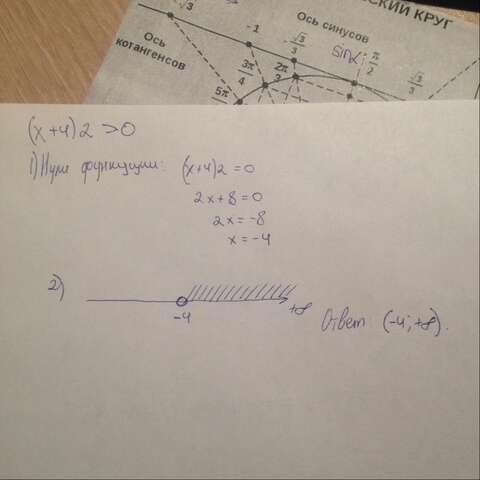 ЕСКИЙ КРУГ
Ось синусов
Ось котангенсов
-√3
-1
-√3/3
√3/3
sinα
π/2
2π/3
3π/4
5π
(x+4)2 >0
1) Нули функции: (x+4)2 =0
2x+8=0
2x=-8
x=-4
2)
-4
+∞
Ответ: (-4;+∞).